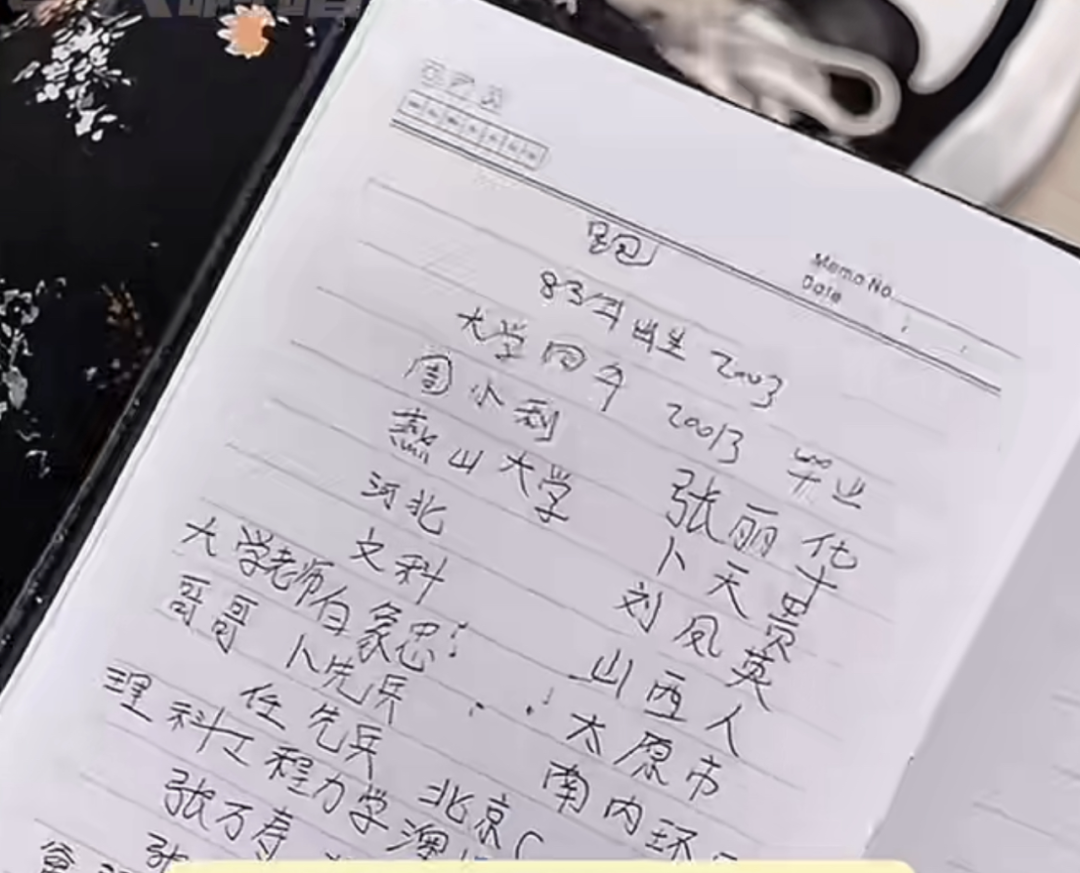 Memo No.
Date
83年出生 2003
大学四年 20013 毕业
周小利 张丽华
燕山大学 卜天贵
河北 刘凤英
文科 山西人
大学老师白象忠: 太原市
哥哥 卜先兵 南内环
任先兵 北京
理科工程力学 澳
张万寿
张